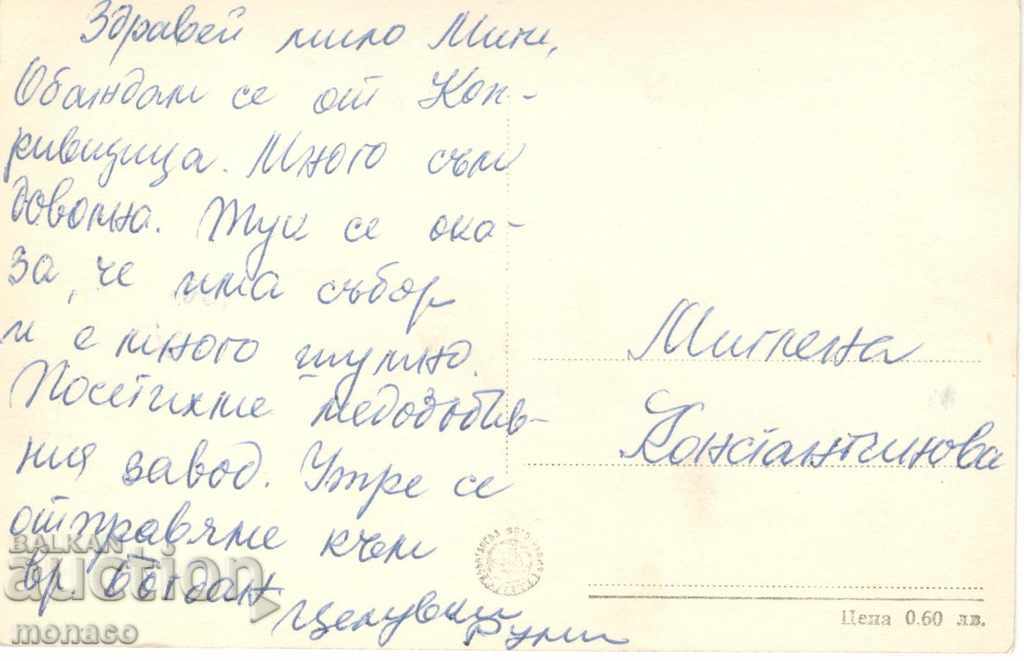 Здравей мило Мими,
Обаждам се от Коп-
ривщица. Много съм
доволна. Тук се ока-
за, че има събор
и е много шумно.
Посетихме медодобив-
ния завод. Утре се
отправяме към
вр Богдан
Целувки
Руми
Миглена
Константинова
Цена 0.60 лв.
BALKAN
auction
monaco